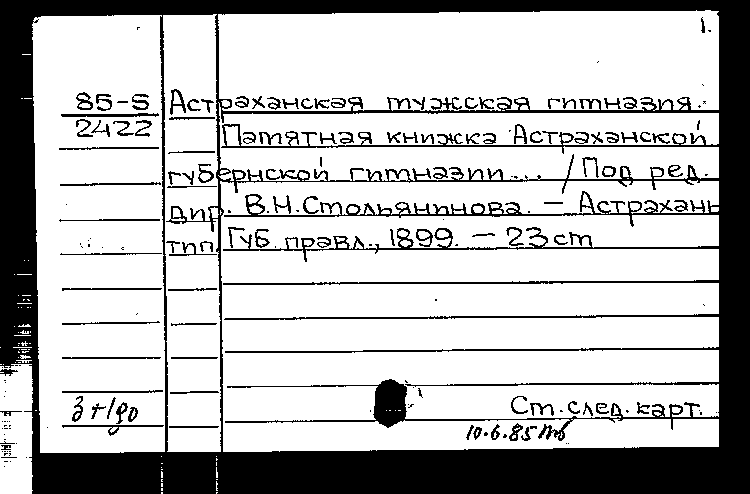 1.
85-5 Астраханская мужская гимназия.
2422 Памятная книжка Астраханской
губернской гимназии... / Под ред.
дир. В.Н.Стольянинова. – Астрахань
тип. Губ. правл., 1899. – 23 см
Ст. след. карт.
10.6.85